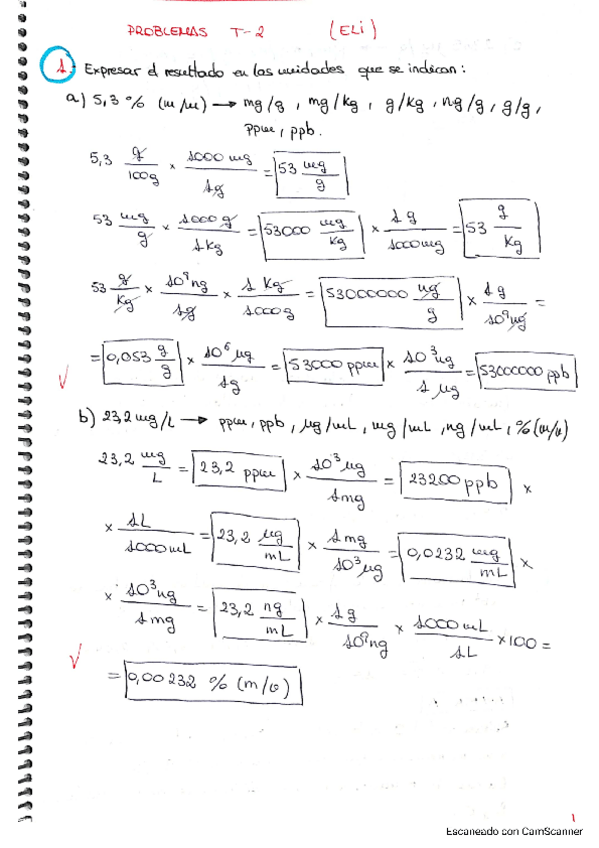 PROBLEMAS T-2 (ELI)
1. Expresar el resultado en las unidades que se indican:
a) 5,3 % (m/m) → mg/g, mg/kg, g/kg, ng/g, g/g,
ppm, ppb.
5,3 g/100g × 1000 mg/1g = 53 mg/g
53 mg/g × 1000 g/1 kg = 53000 mg/kg × 1 g/1000 mg = 53 g/Kg
53 g/Kg × 10⁹ ng/1g × 1 Kg/1000 g = 53000000 ng/g × 1 g/10⁹ ng =
= 0,053 g/g × 10⁶ µg/1g = 53000 ppm × 10³ ng/1 µg = 53000000 ppb
b) 23,2 mg/L → ppm, ppb, µg/mL, mg/mL, ng/mL, % (m/v)
23,2 mg/L = 23,2 ppm × 10³ µg/1mg = 23200 ppb ×
× 1L/1000 mL = 23,2 µg/mL × 1 mg/10³ µg = 0,0232 mg/mL ×
× 10³ ng/1 mg = 23,2 ng/mL × 1 g/10⁹ ng × 1000 mL/1L × 100 =
= 0,00232 % (m/v)
1
Escaneado con CamScanner